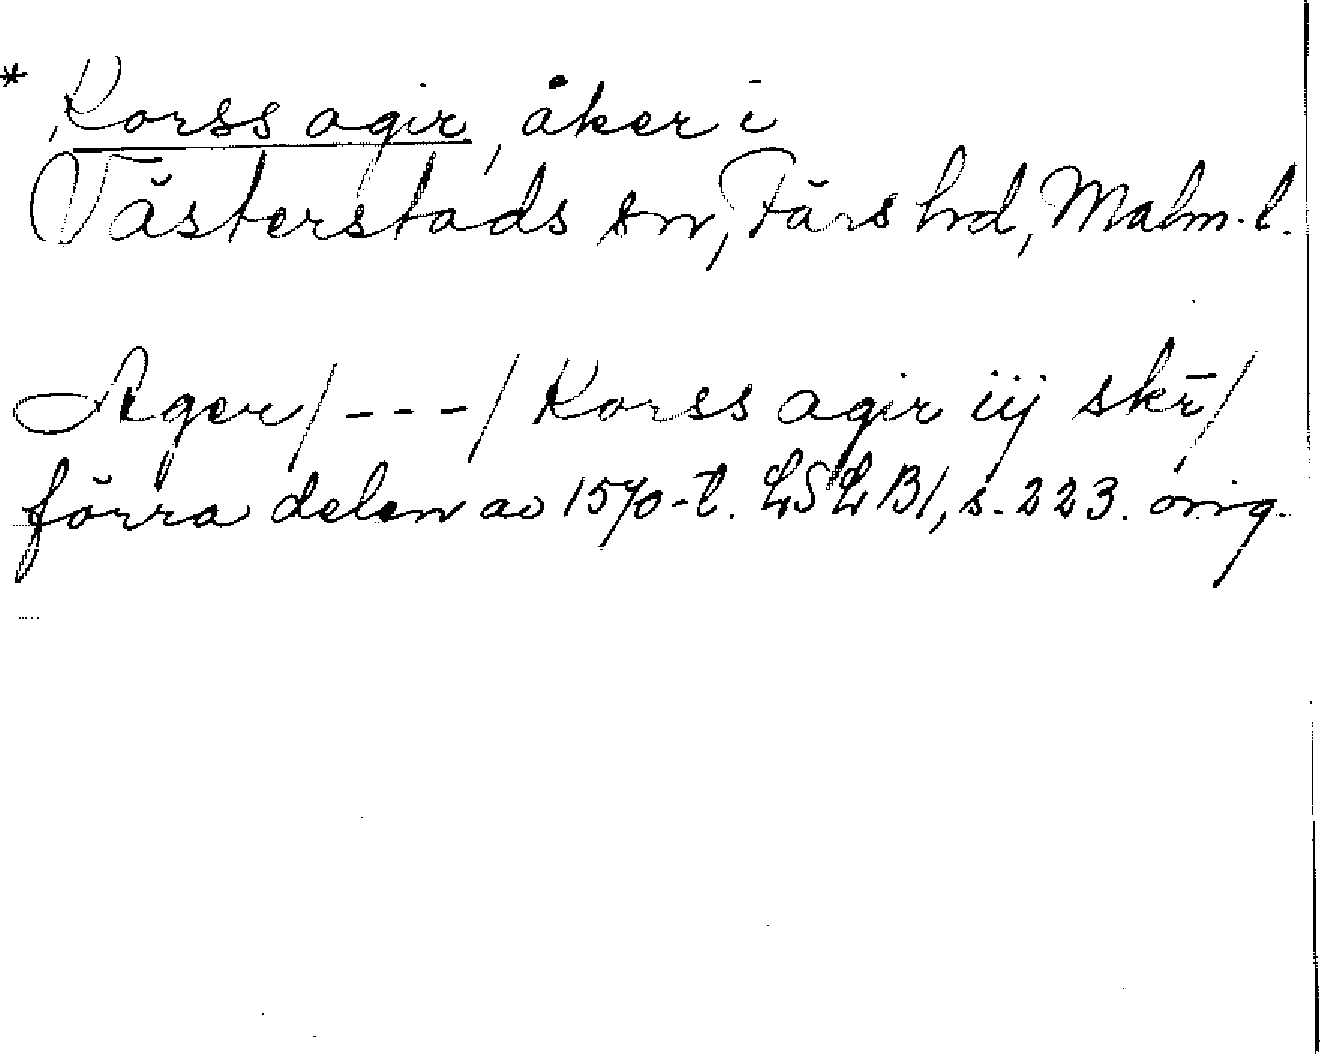 * Korss agir, åker i
Västerstads sn, Färs hd, Malm. l.
Ager/---/ Korss agir iij skr̄/
förra delen av 1570-t. LSLB1, s. 223. orig.